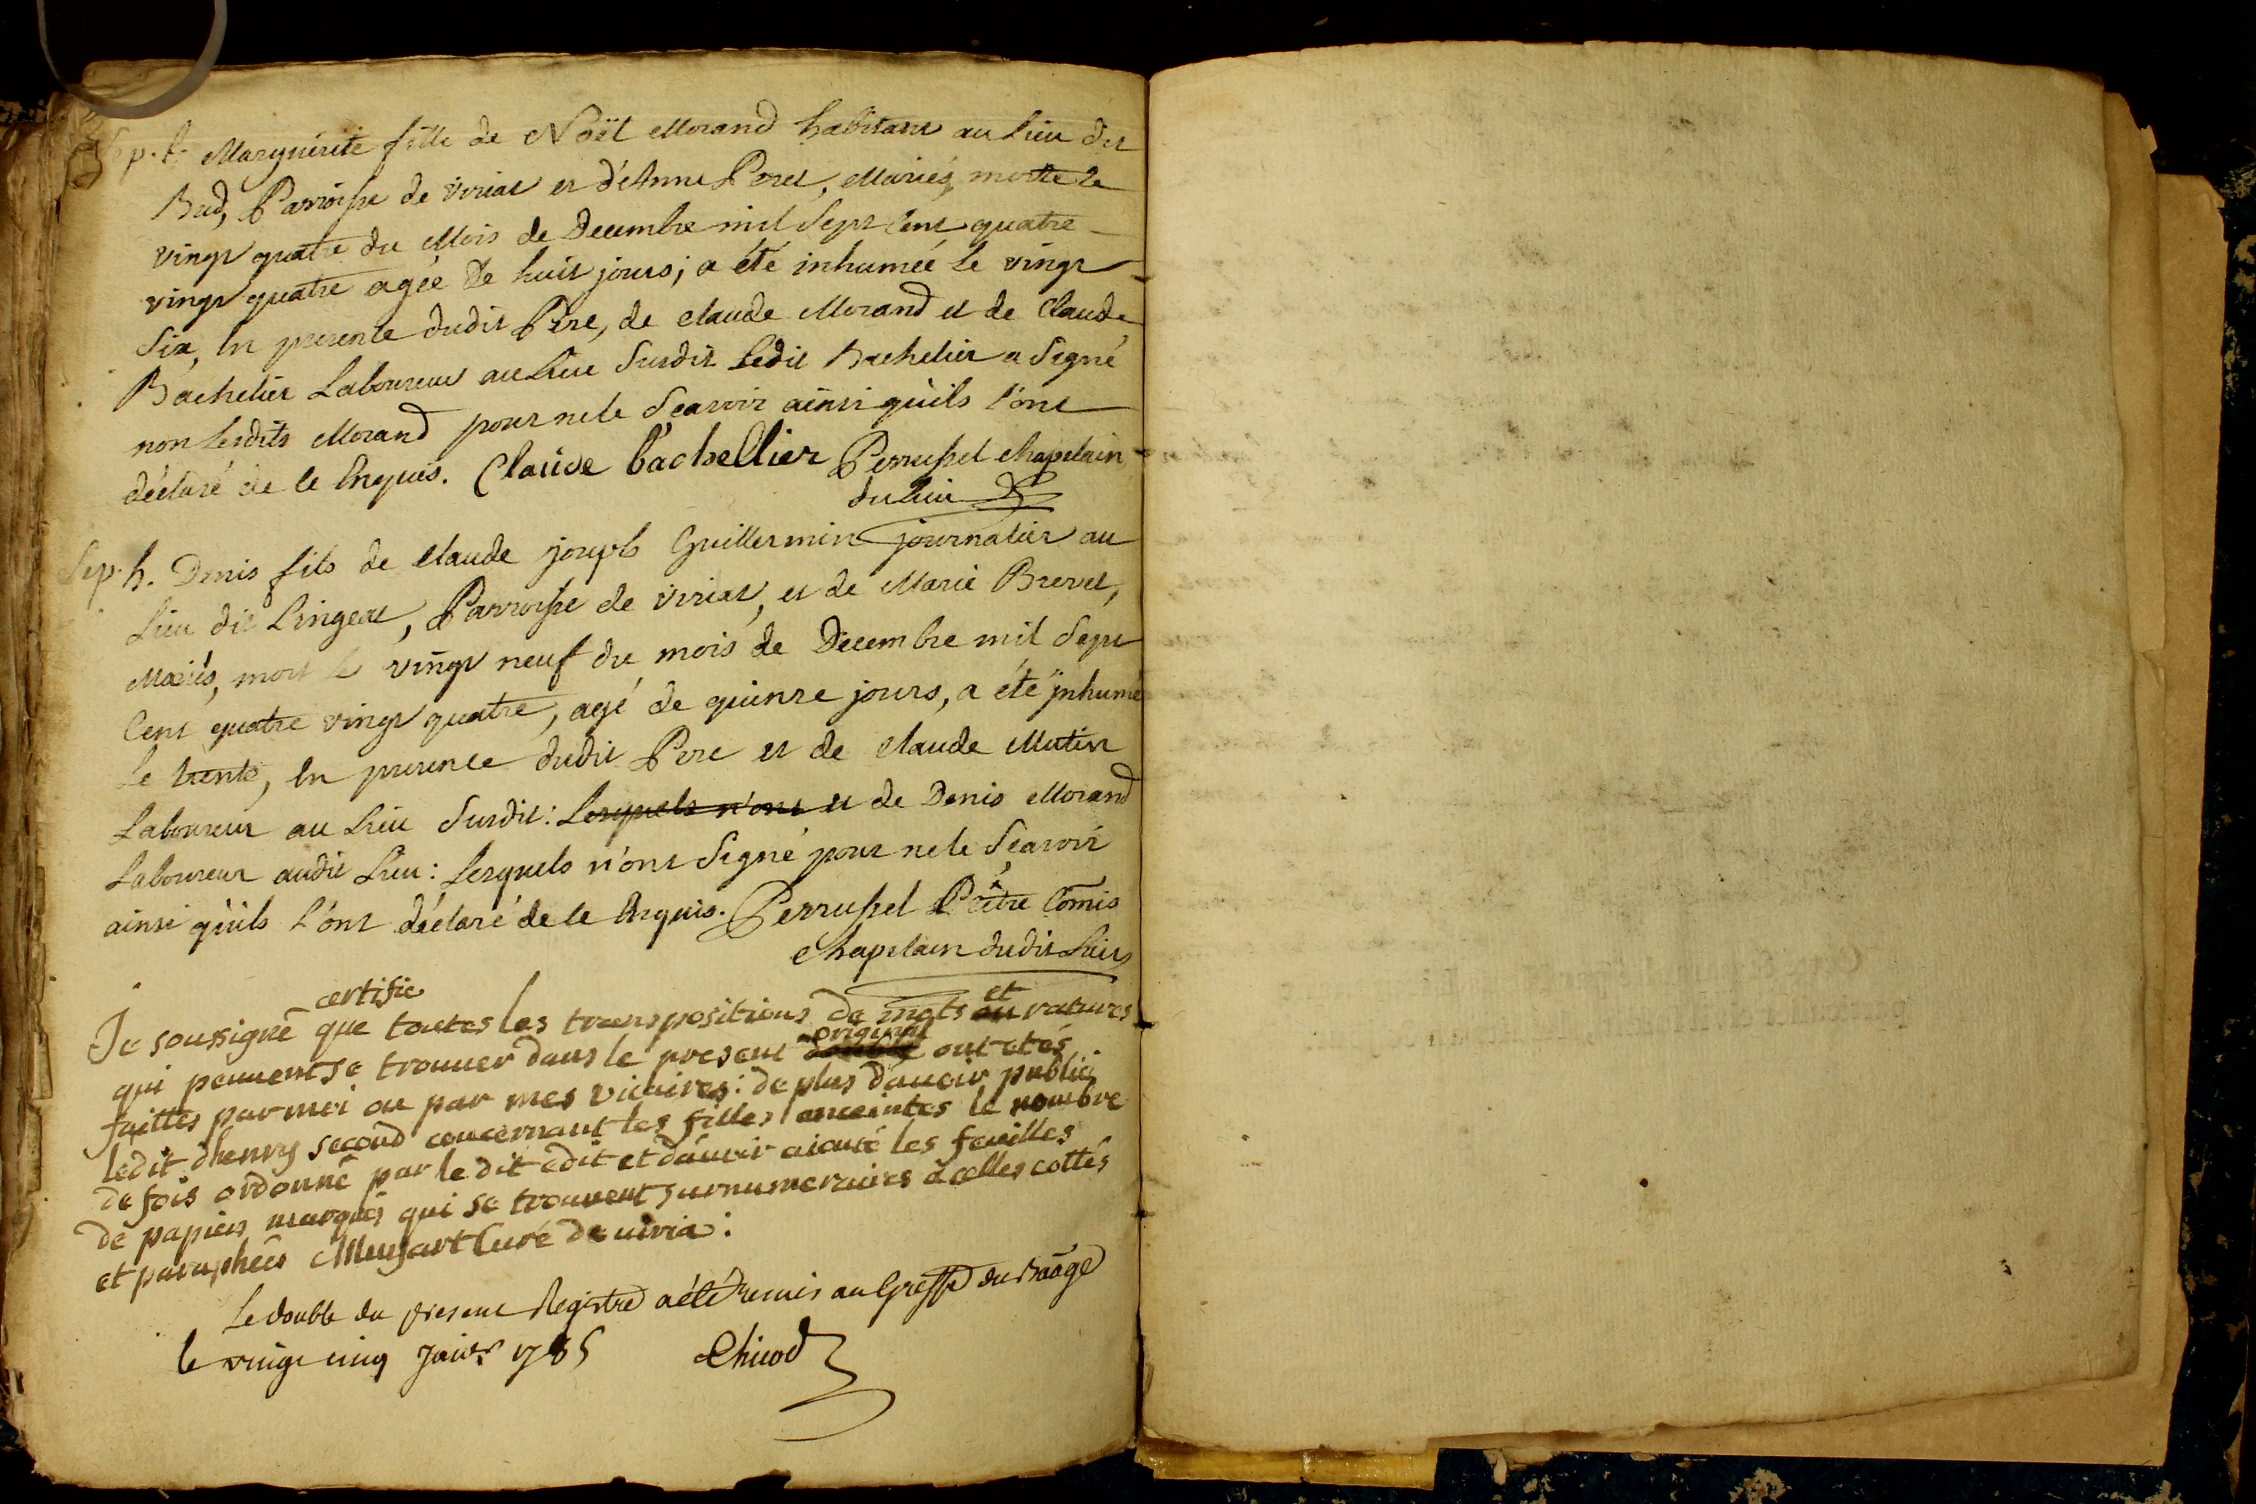 Sep. h. Marguérite fille de Noël Morand habitant au Lieu des
Bud, Parroisse de viriat et d'Anne Peret, Mariés, morte le
vingt quatre du Mois de Decembre mil Sept Cent quatre
vingt quatre agée de huit jours; a été inhumée le vingt
Six, En presence dudit Pere, de Claude Morand et de Claude
Bachelier Laboureur au Lieu Susdit Ledit Bachelier a Signé
non Lesdits Morand pour ne le Scavoir ainsi qu'ils l'ont
déclaré de le Enquis. Claude bachellier Perrussel chapelain
du Lieu
Sep. h. Denis fils de Claude joseph Guillermin journalier au
Lieu dit Lingeat, Parroisse de viriat, et de Marie Brevet,
Mariés, mort le vingt neuf du mois de Decembre mil Sept
Cent quatre vingt quatre, agé de quinze jours, a été inhumé
Le trente, En presence dudit Pere et de Claude Mutin
Laboureur au Lieu Susdit: Lesquels n'ont et de Denis Morand
Laboureur audit Lieu: Lesquels n'ont Signé pour ne le Sçavoir
ainsi qu'ils L'ont déclaré de le Enquis. Perrussel Prêtre Comis
Chapelain dudit Lieu
certifie
Je soussigné que toutes les transpositions de mots ou et ratures
original
qui peuuent se trouuer dans le present double ont etés
faittes par moi ou par mes vicaires: de plus d'auoir publié
ledit d'henry second concernant les filles enceintes le nombre
de fois ordonné par le dit edit et d'auoir aiouté les feuilles
de papiers marqués qui se trouuent surnumeraires à celles cottés
et paraphées Curé de uiria:
Le double du present Registre a été remis au Greffe du Baâge
le vingt cinq Janvr 1785 Chicod